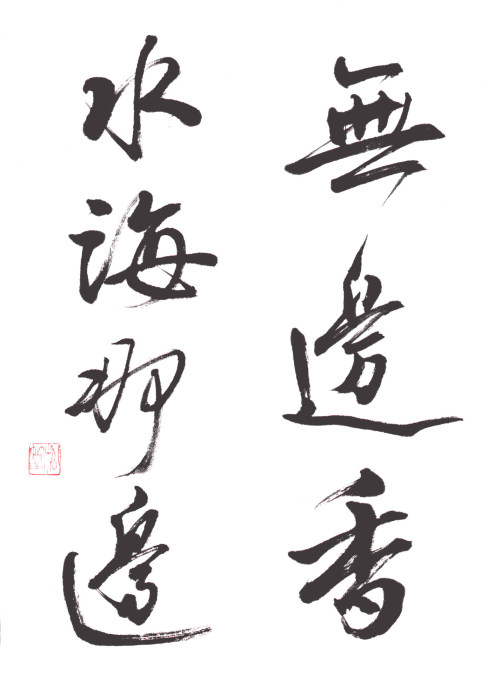 無邊香
水海那邊